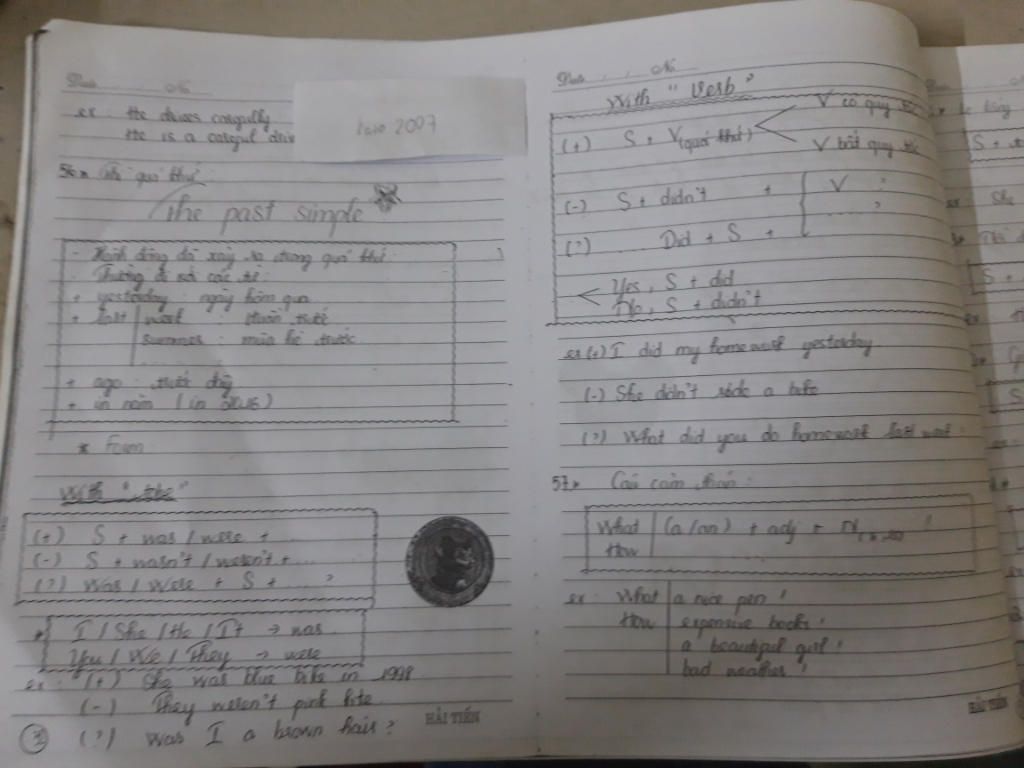 Date No
ex : He drives carefully
He is a careful
2007
56* Thì quá khứ :
The past simple
- Hành động đã xảy ra trong quá khứ.
- Thường đi với các từ :
+ yesterday : ngày hôm qua
+ last | week : tuần trước
summer : mùa hè trước
...
+ ago : trước đây
+ in năm (in
* Form
With "tobe"
(+) S + was / were + ...
(-) S + wasn't / weren't + ...
(?) Was / Were + S + ... ?
* I / She / He / It → was
You / We / They → were
ex : (+) She was blue bike in 1998
(-) They weren't pink kite
(?) Was I a brown hair ?
HẢI TIẾN
Date No
With "Verb"
(+) S + V(quá khứ) V có quy tắc
V bất quy tắc
(-) S + didn't + V
(?) Did + S + ... ?
Yes, S + did
No, S + didn't
ex (+) I did my homework yesterday
(-) She didn't ride a bike
(?) What did you do homework last week
57* Câu cảm thán :
What | (a / an) + adj + N !
How | ...
ex : What | a nice pen !
How | expensive books !
a beautiful girl !
bad weather !
HẢI TIẾN